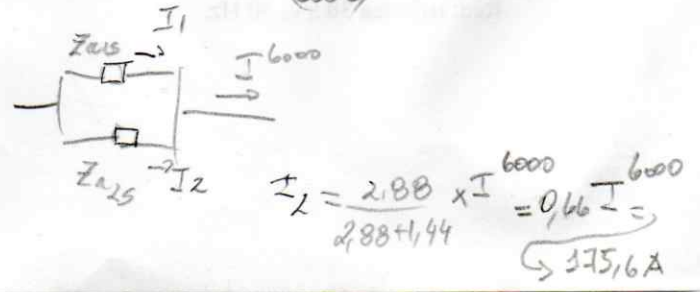 I1
I^6000
I2
I2 = 2,88 / 2,88+1,44 × I^6000 = 0,66 I^6000 =
175,6 A